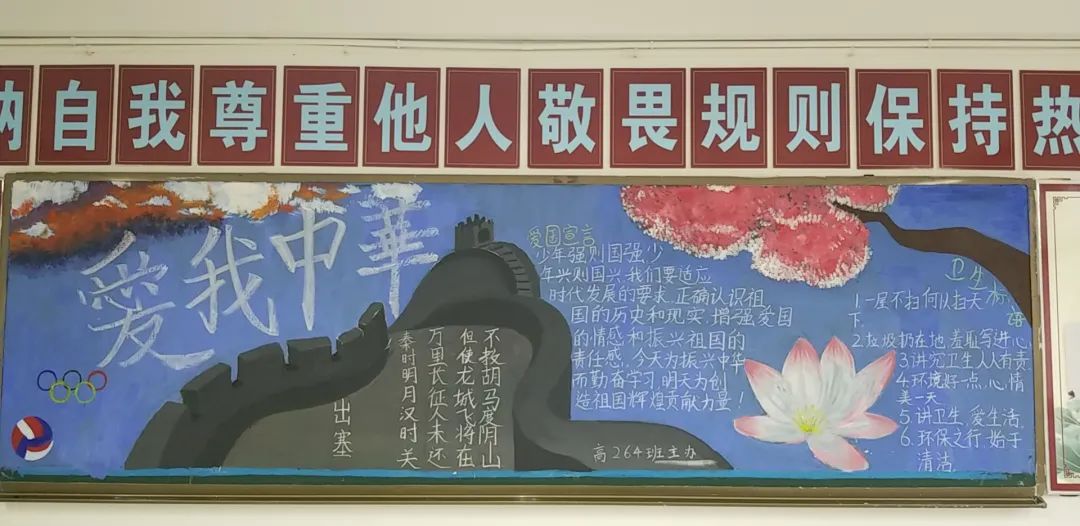 纳自我尊重他人敬畏规则保持热
爱我中華
出塞
秦时明月汉时关
万里长征人未还
但使龙城飞将在
不教胡马度阴山
爱国宣言
少年强则国强,少
年兴则国兴,我们要适应
时代发展的要求,正确认识祖
国的历史和现实,增强爱国
的情感和振兴祖国的
责任感,今天为振兴中华
而勤奋学习,明天为创
造祖国辉煌贡献力量!
高264班主办
卫生标语
1.一屋不扫何以扫天
下.
2.垃圾扔在地 羞耻写进心
3.讲究卫生人人有责
4.环境好一点,心情
美一天
5.讲卫生,爱生活.
6.环保之行,始于
清洁.